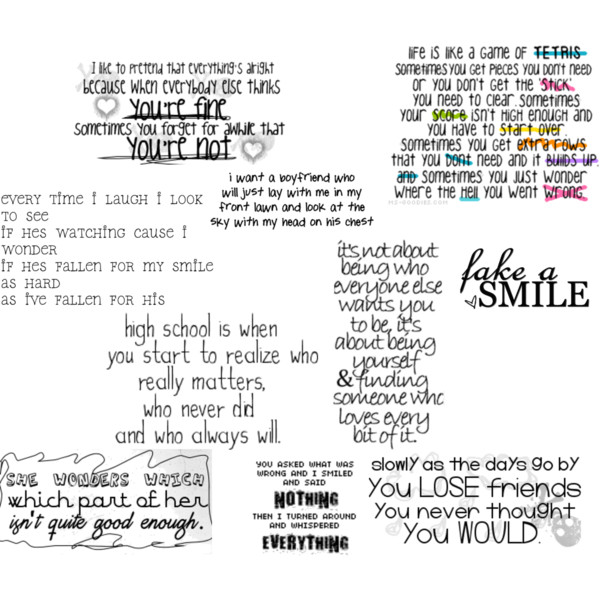 I like to pretend that everything's alright
because when everybody else thinks
you're fine
sometimes you forget for awhile that
you're not
life is like a game of TETRIS
sometimes you get pieces you don't need
or you don't get the 'stick'
you need to clear. sometimes
your score isn't high enough and
you have to start over.
sometimes you get extra rows
that you dont need and it builds up
and sometimes you just wonder
where the hell you went wrong.
i want a boyfriend who
will just lay with me in my
front lawn and look at the
sky with my head on his chest
every time i laugh i look
to see
if hes watching cause i
wonder
if hes fallen for my smile
as hard
as ive fallen for his
it's not about
being who
everyone else
wants you
to be, it's
about being
yourself
& finding
someone who
loves every
bit of it.
fake a
SMILE
high school is when
you start to realize who
really matters,
who never did
and who always will.
SHE WONDERS WHICH
which part of her
isn't quite good enough.
YOU ASKED WHAT WAS
WRONG AND I SMILED
AND SAID
NOTHING
THEN I TURNED AROUND
AND WHISPERED
EVERYTHING
slowly as the days go by
You LOSE friends
You never thought
You WOULD.